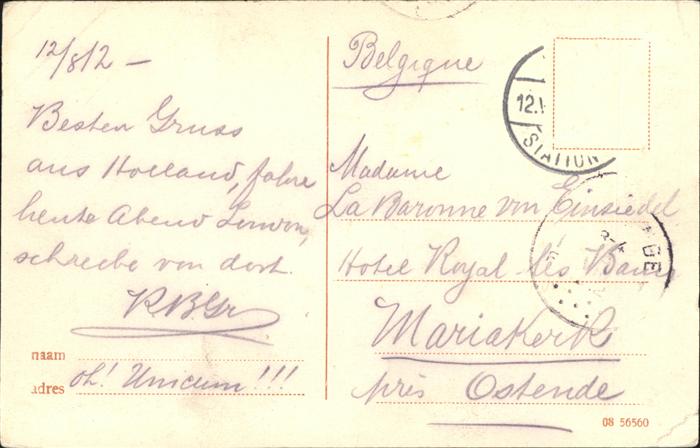 12/8/2 —
Besten Gruss
aus Holland, fahre
heute Abend London,
schreibe von dort.
naam
adres oh! Unicum!!!
Belgique
12.
STATION
Madame
La Baronne von Einsiedel
Hotel Royal des Bains
GE
MariaKerk
près Ostende
08 56560